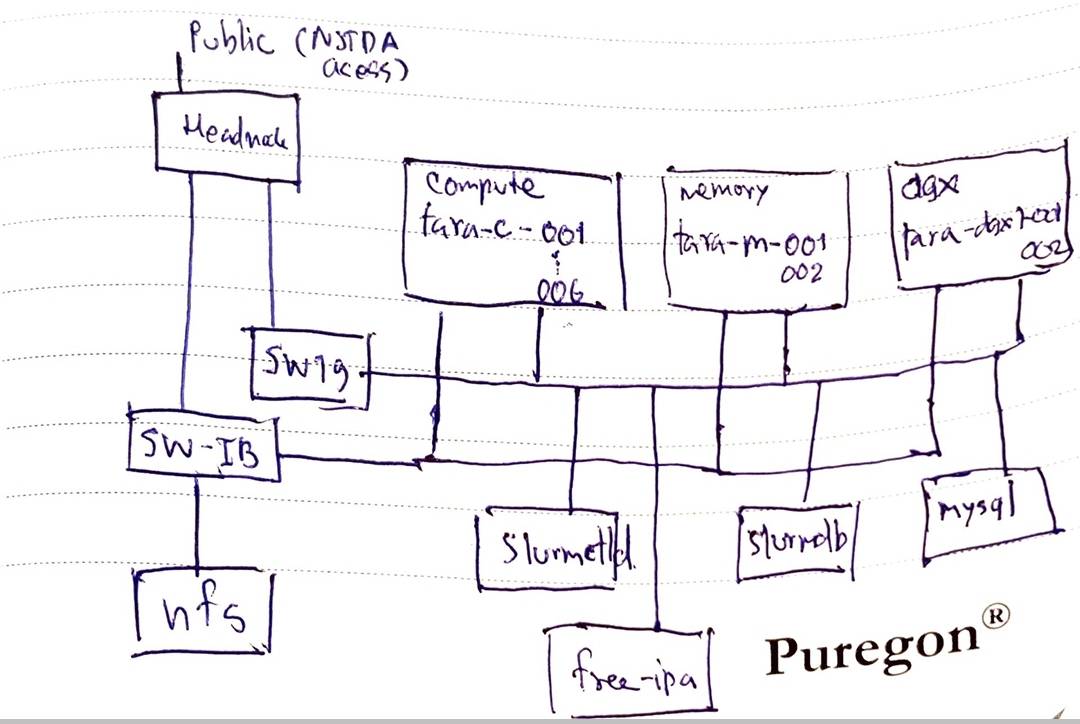 Public (NSTDA
acess)
Headnode
compute
tara-c-001
006
memory
tara-m-001
002
dgx
tara-dgx1-001
002
SW1g
SW-IB
nfs
Slurmctld
slurmdb
mysql
free-ipa
Puregon®